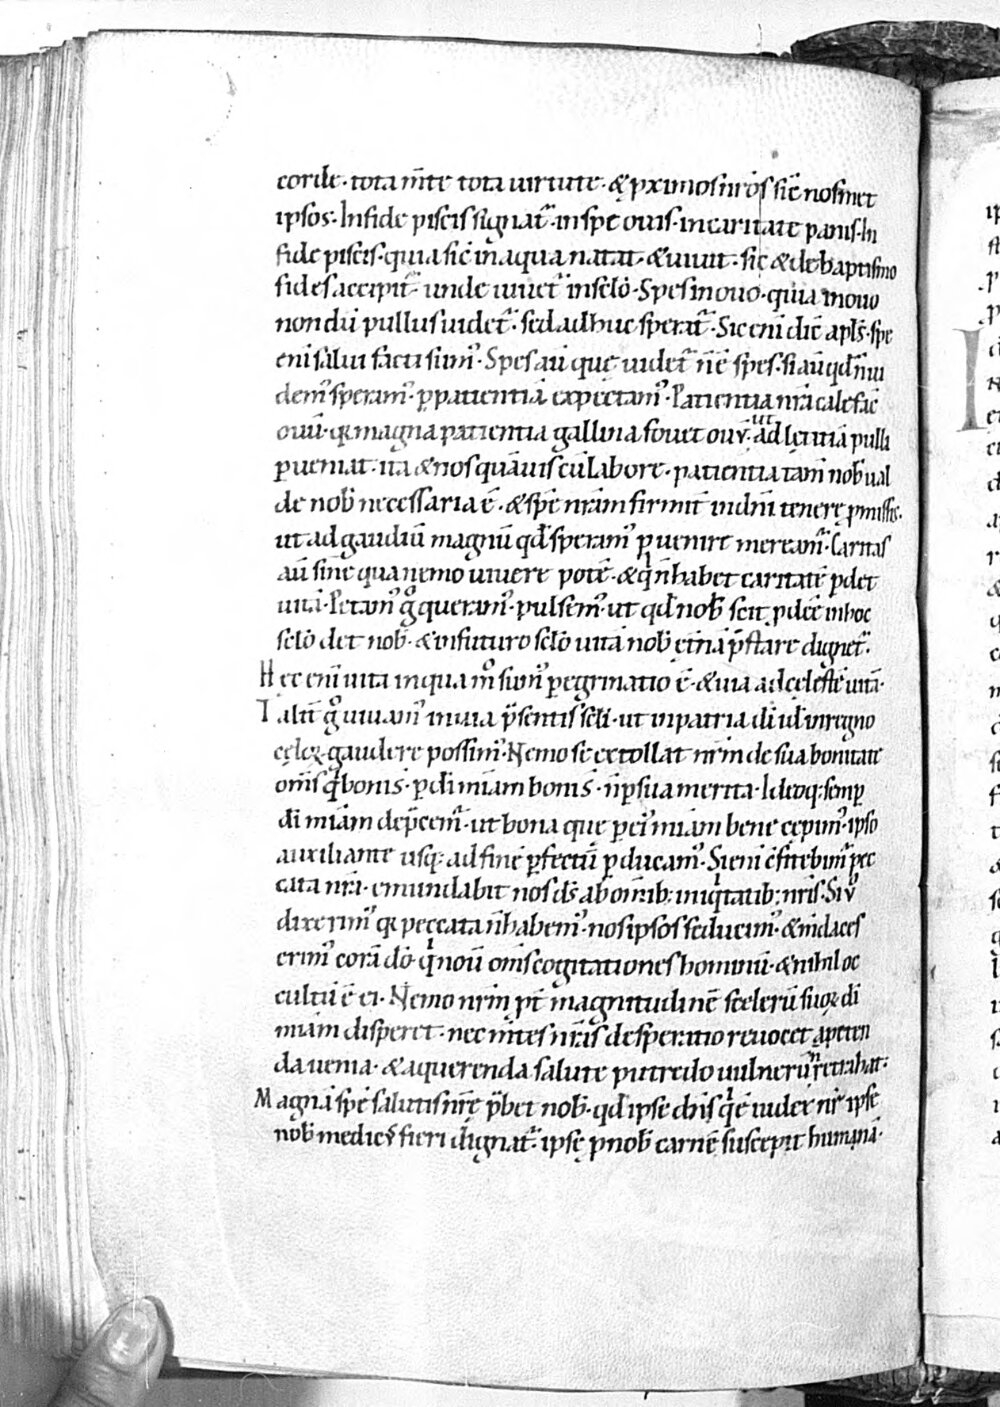 corde· tota m̅te tota uirtute· & pximos nr̅os sic̅ nosmet
ipsos· In fide piscis signat᷑· in spe ouis· in caritate panis· In
fide piscis· quia sic̅ in aqua natat· & uiuit· sic & de baptismo
fides accipit᷑ unde uiuet᷑ in sc̅lo· Spes in ouo· quia in ouo
nondu̅ pullus uidet᷑· sed adhuc sperat᷑· Sic eni̅ dic̅ apl̅s· spe
eni̅ salui facti sum᷒· Spes au̅ que uidet᷑ n̅ e̅ spes· si au̅ qd̅ n̅ ui
dem᷒ speram᷒· p̱ patientia̅ expectam᷒· Patientia nr̅a calefac̅
ouu̅· q̅ magna patientia gallina fouet ouu̅· ut ad lętitia̅ pulli
p̱ueniat· ita & nos qua̅uis cu̅ labore· patientia tam̅ nob̅ ual
de nob̅ necessaria e̅· & spe̅ nr̅am firmit̅ in dn̅i tenere p̱missis·
ut ad gaudiu̅ magnu̅ qd̅ speram᷒ p̱uenire meream᷑· Caritas
au̅ sine qua nemo uiuere pote̅· & qͥ n̅ habet caritate̅ p̱det
uita̅· Petam᷒ gͦ queram᷒· pulsem᷒· ut qd̅ nob̅ scit p̱dee̅ in hoc
sc̅lo det nob̅· & in futuro sc̅lo uita̅ nob̅ et̅na̅ p̅stare dignet᷑·
Hęc eni̅ uita in qua mͦ sum᷒ p̱egrinatio e̅· & uia ad cęleste̅ uita̅·
Talit̅ gͦ uiuam᷒ in uia p̅sentis sc̅li· ut in patria di̅ id̅ in regno
cęloꝝ gaudere possim᷒· Nemo se extollat nr̅m de sua bonitate
om̅s qͥ bonis· p̱ di̅ mi̅am bonis· n̅ p̱ sua merita· Ideoq; semp̱
di̅ mi̅am dep̅cem᷑· ut bona que p̱ ei᷒ mi̅am bene cępim᷒· ipso
auxiliante usq; ad fine̅ p̱fectu̅ p̱ducam᷒· Si eni̅ c̅fitebim᷑ pec
cata nr̅a· emundabit nos ds̅ ab omib; iniqͥtatib; nr̅is· Si ů
dixerim᷒ q̅ peccata n̅ habem᷒· nos ipsos seducim᷒· & m̅daces
erim᷒ cora̅ do̅· qͥ nouit om̅s cogitationes hominu̅· & nihil oc
cultu̅ e̅ ei· Nemo nr̅m pt̅ magnitudine̅ sceleru̅ suoꝝ di̅
mi̅am disperet· nec m̅tes nr̅is desperatio reuocet a peten
da uenia· & a querenda salute putredo uulneru̅ retrahat·
Magna̅ spe̅ salutis nr̅ę p̅bet nob̅· qd̅ ipse chr̅s qͥ e̅ iudex nr̅ ipse
nob̅ medic᷒ fieri dignat᷑· ipsę p̱ nob̅ carne̅ suscepit humana̅·